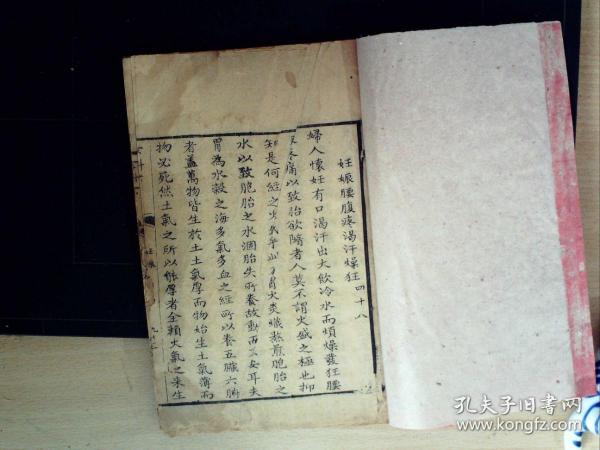 妊娠腰腹疼渴汗燥狂四十八
婦人懷妊有口渴汗出大飲冷水而煩燥發狂腰
腹疼痛以致胎欲墮者人莫不謂火盛之極也抑
知是何經之火乎此乃胃火炎熾熬煎胞胎之
水以致胞胎之水涸胎失所養故動而不安耳夫
胃為水穀之海多氣多血之經所以養五臟六腑
者蓋萬物皆生於土土氣厚而物始生土氣薄而
物必死然土氣之所以能厚者全賴火氣之來生
孔夫子旧书网
www.kongfz.com